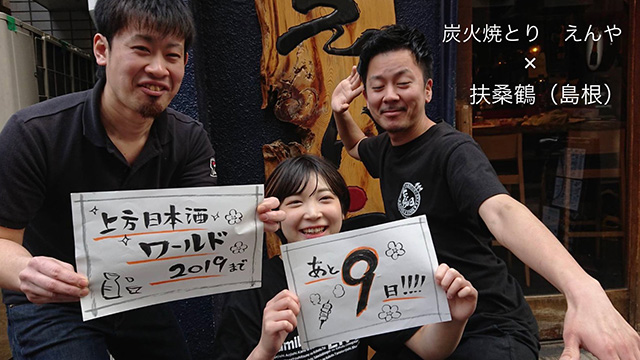 炭火焼とり　えんや
×
扶桑鶴（島根）
上方日本酒
ワールド
2019まで
あと9日!!!!